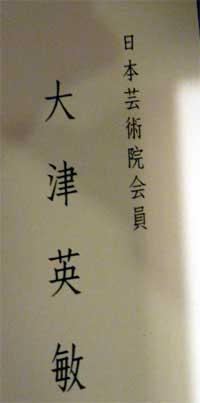 日本芸術院会員
大津英敏